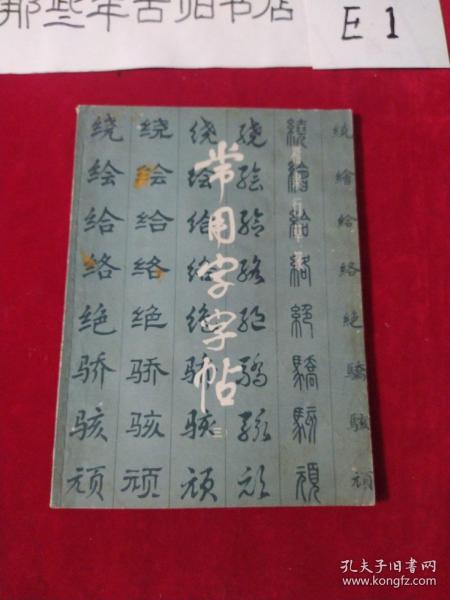 那些年古旧书店
E1
常用字字帖
三
绕 绕 绕 绕 繞 繞
绘 绘 绘 绘 繪 繪
给 给 给 给 給 給
络 络 络 络 絡 絡
绝 绝 绝 绝 絕 絶
骄 骄 骄 骄 驕 驕
骇 骇 骇 骇 駭 駭
顽 顽 顽 顽 頑 頑
孔夫子旧书网
www.kongfz.com